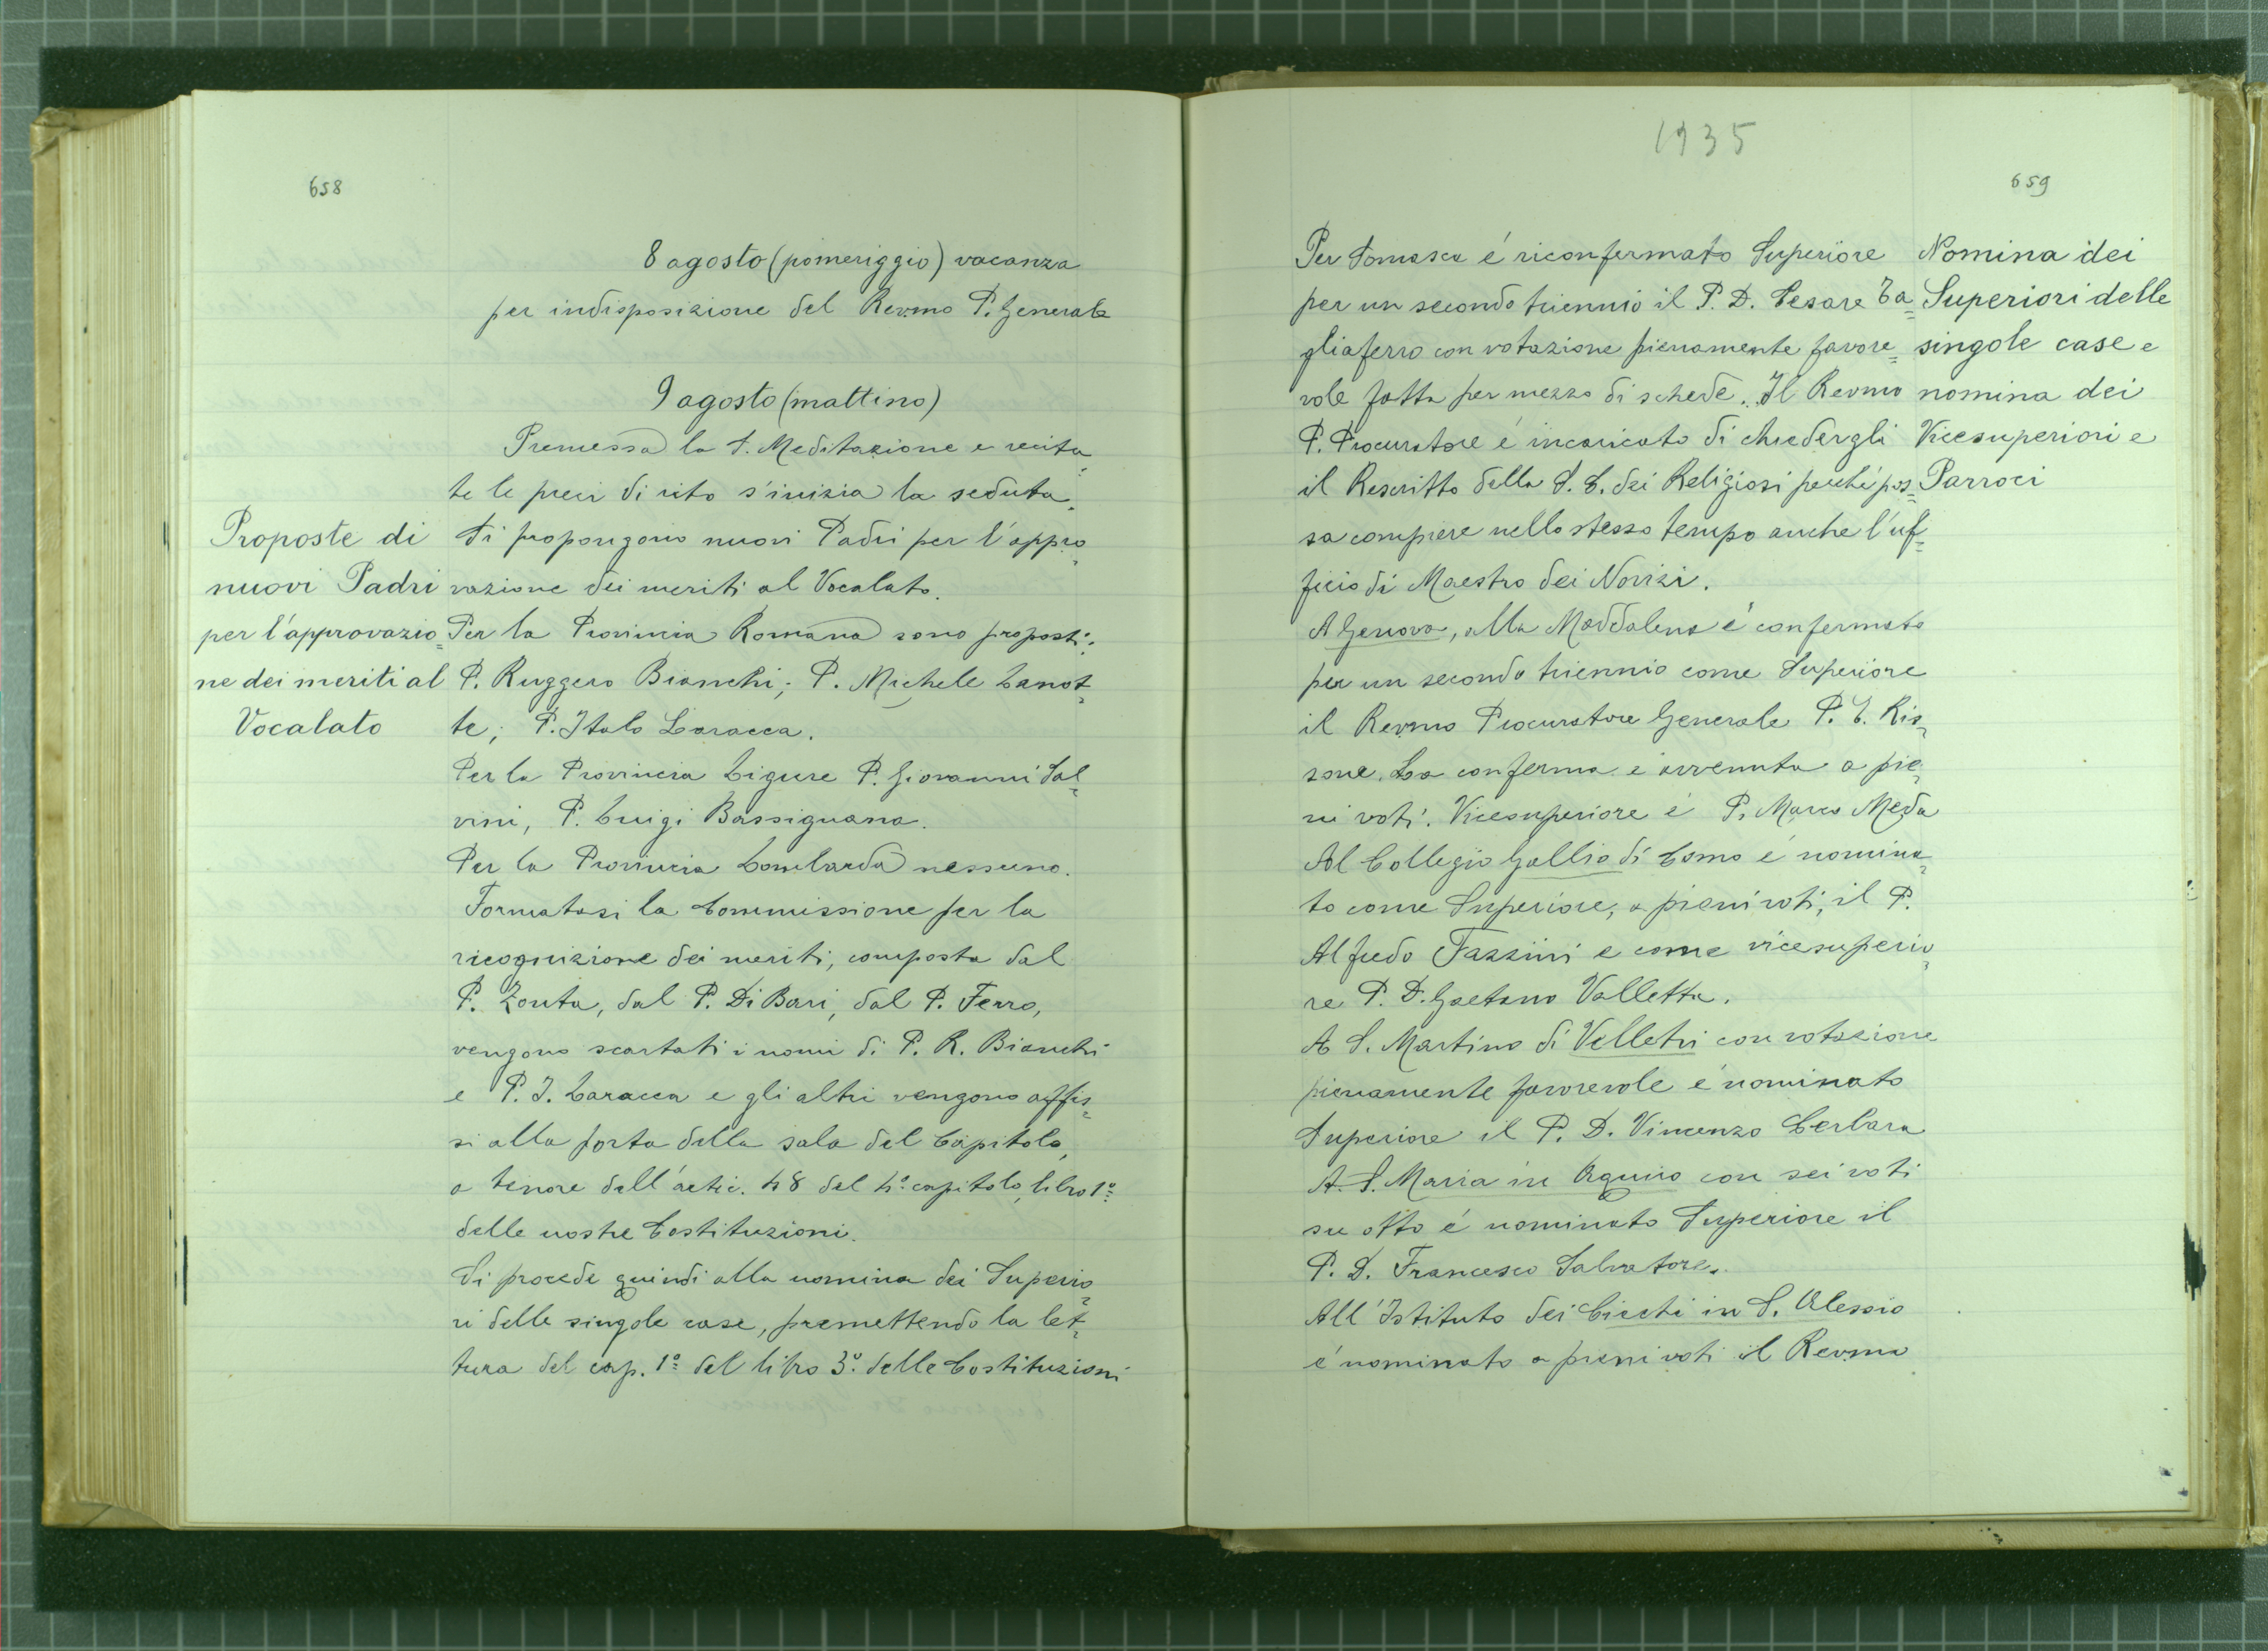 658
8 agosto (pomeriggio) vacanza
per indisposizione del Rev.mo P. Generale
9 agosto (mattino)
Premessa la S. Meditazione e recita-
te le preci di rito s'inizia la seduta.
Si propongono nuovi Padri per l'appro-
vazione dei meriti al Vocalato.
Per la Provincia Romana sono proposti:
P. Ruggero Bianchi; P. Michele Lanot-
te; P. Italo Laracca.
Per la Provincia Ligure P. Giovanni Sal-
vini, P. Luigi Bassignana.
Per la Provincia Lombarda nessuno.
Formatasi la Commissione per la
ricognizione dei meriti, composta dal
P. Zonta, dal P. Di Bari, dal P. Ferro,
vengono scartati i nomi di P. R. Bianchi
e P. I. Laracca e gli altri vengono affis-
si alla porta della sala del Capitolo,
a tenore dell'artic. 48 del 4º capitolo, libro 1º
delle nostre Costituzioni.
Si procede quindi alla nomina dei Superio-
ri delle singole case, premettendo la let-
tura del cap. 1º del libro 3º delle Costituzioni
Proposte di
nuovi Padri
per l'approvazio=
ne dei meriti al
Vocalato
1935
659
Per Somasca é riconfermato Superiore
per un secondo triennio il P. D. Cesare Ta=
gliaferro con votazione pienamente favore=
vole fatta per mezzo di schede. Il Rev.mo
P. Procuratore é incaricato di chiedergli
il Rescritto della S. C. dei Religiosi perché pos=
sa compiere nello stesso tempo anche l'uf=
ficio di Maestro dei Novizi.
A Genova, alla Maddalena é confermato
per un secondo triennio come Superiore
il Rev.mo Procuratore Generale P. G. Ris-
sone. La conferma é avvenuta a pie-
ni voti. Vicesuperiore é P. Marco Meda
Al Collegio Gallio di Como é nomina-
to come Superiore, a pieni voti, il P.
Alfredo Fazzini e come vicesuperio-
re P. D. Gaetano Valletta.
A S. Martino di Velletri con votazione
pienamente favorevole é nominato
Superiore il P. D. Vincenzo Cerbara
A. S. Maria in Aquiro con sei voti
su otto é nominato Superiore il
P. D. Francesco Salvatore.
All'Istituto dei Ciechi in S. Alessio
é nominato a pieni voti il Rev.mo
Nomina dei
Superiori delle
singole case e
nomina dei
Vicesuperiori e
Parroci